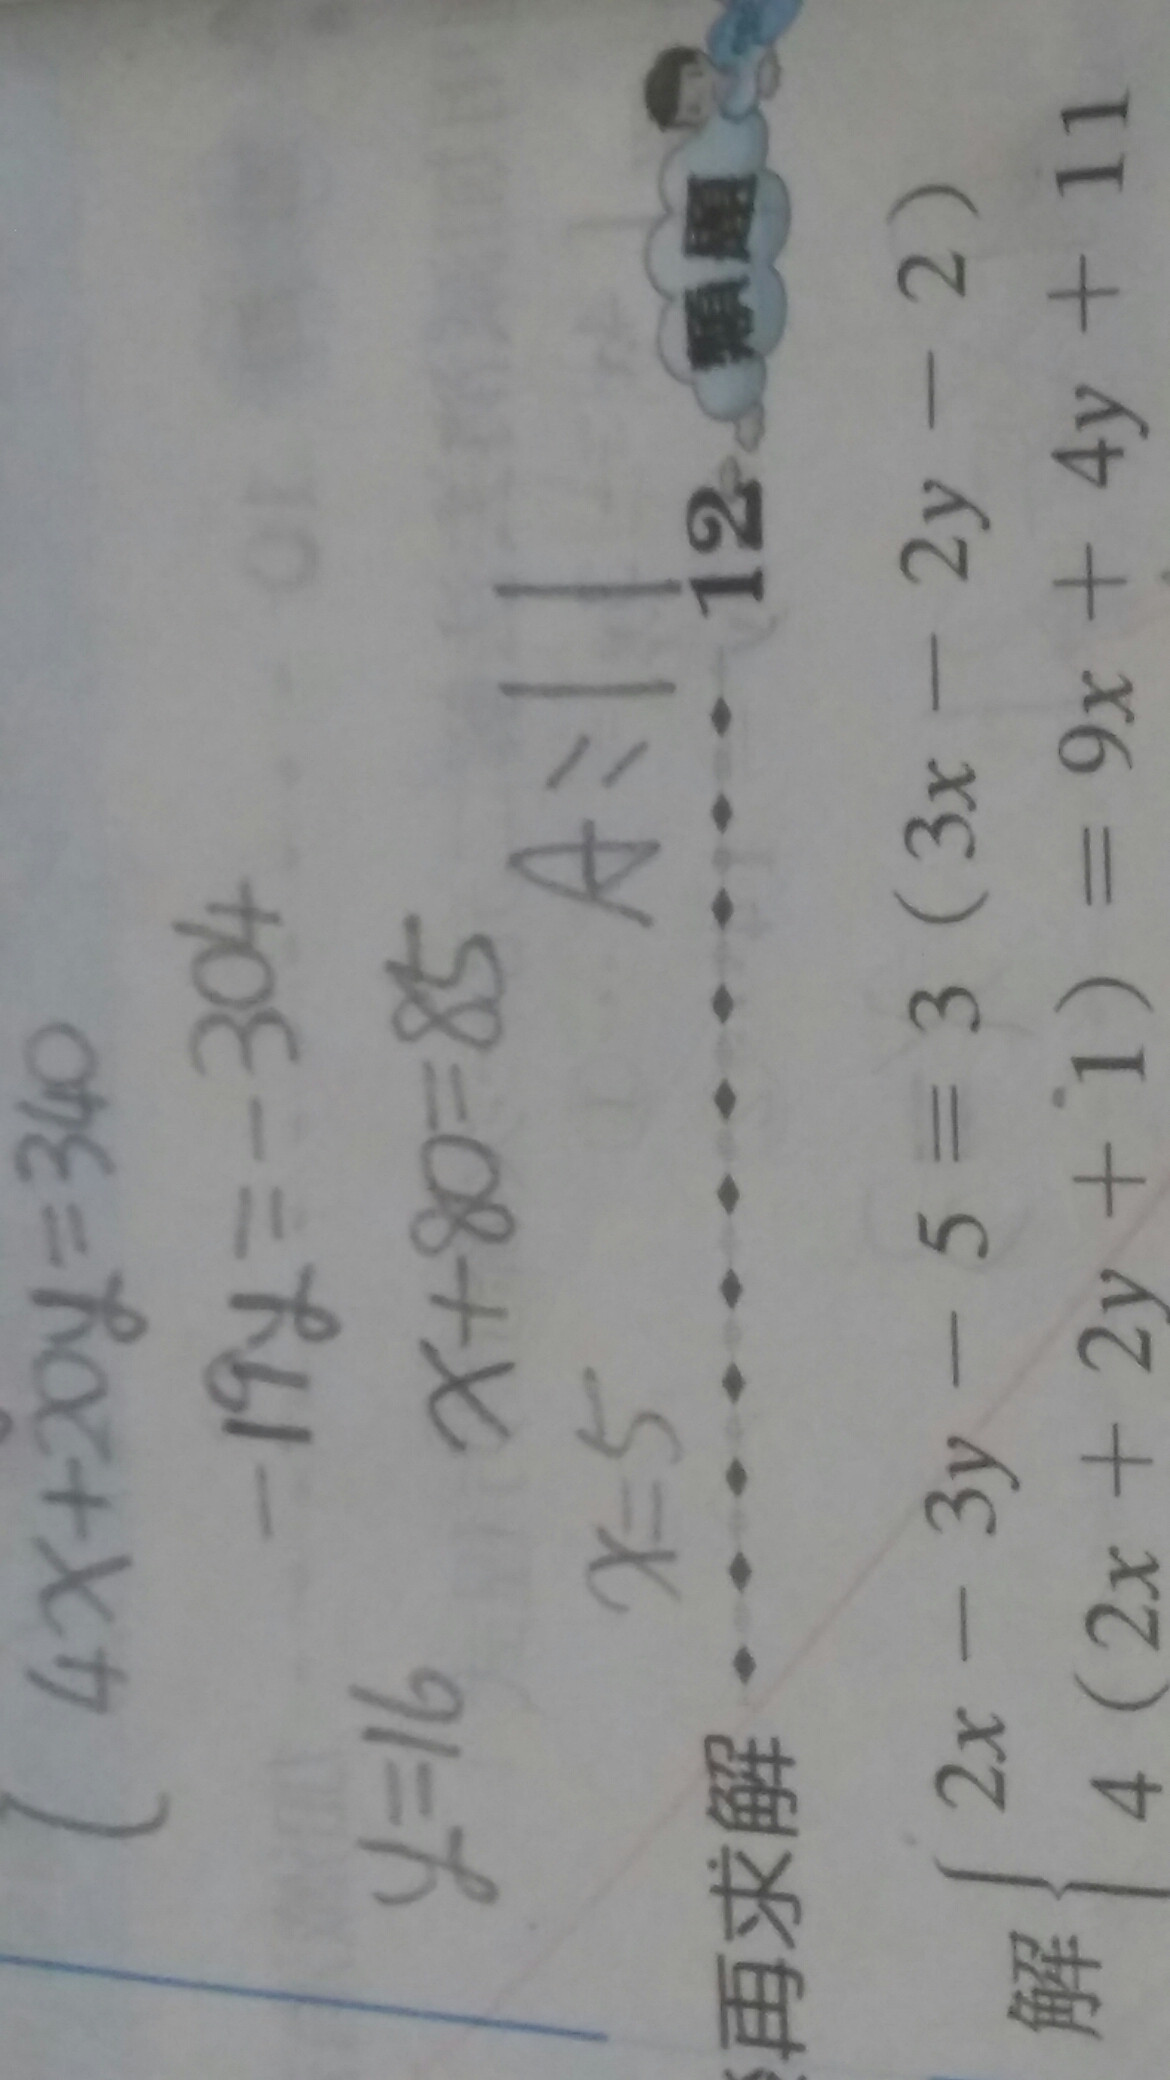 4x+20y=340
-19y=-304
y=16
x+80=85
x=5
A=11
再求解
12
類題
解 { 2x - 3y - 5 = 3 ( 3x - 2y - 2 )
4 ( 2x + 2y + 1 ) = 9x + 4y + 11